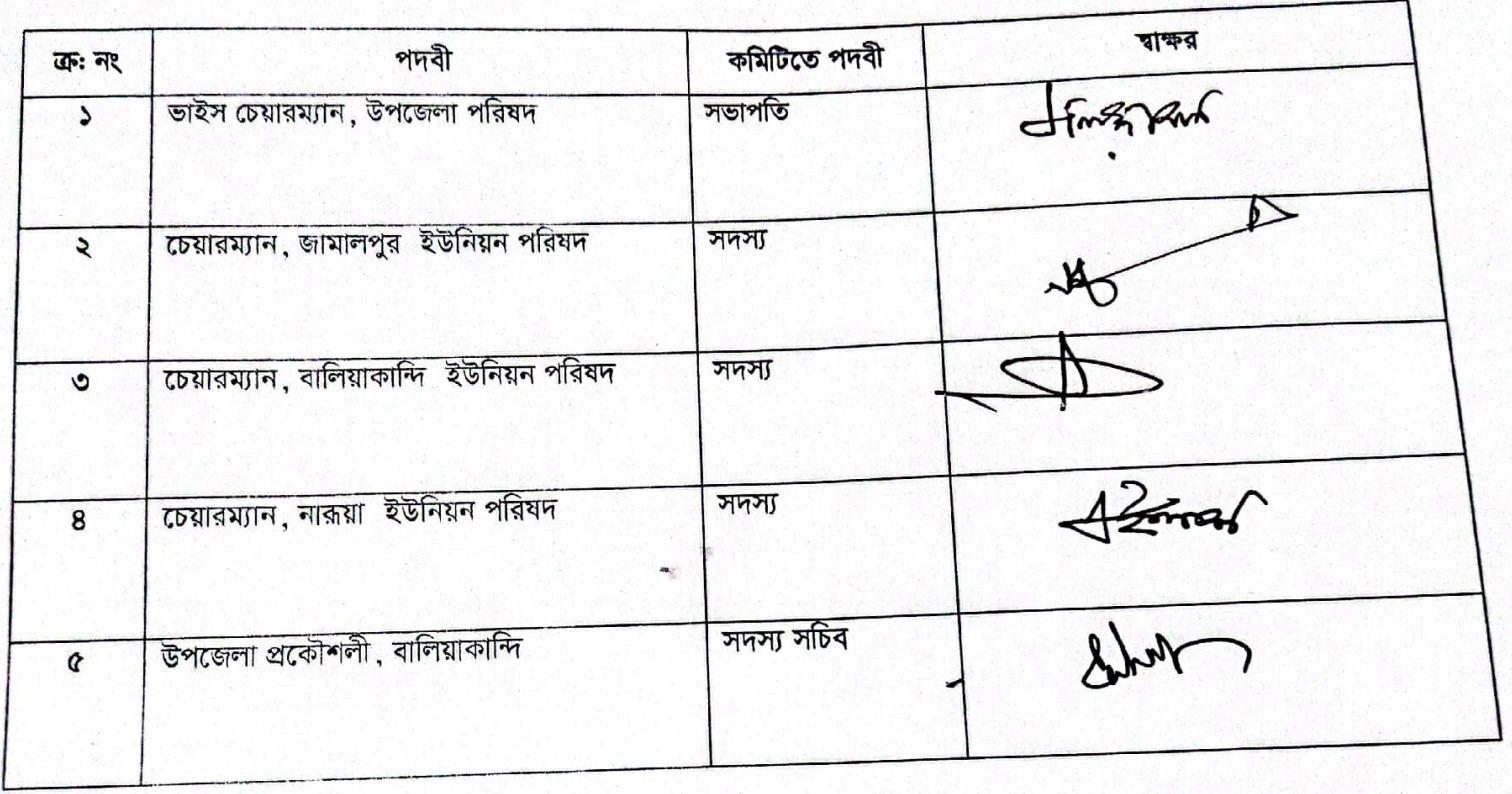 ক্র: নং পদবী কমিটিতে পদবী স্বাক্ষর
১ ভাইস চেয়ারম্যান, উপজেলা পরিষদ সভাপতি
২ চেয়ারম্যান, জামালপুর ইউনিয়ন পরিষদ সদস্য
৩ চেয়ারম্যান, বালিয়াকান্দি ইউনিয়ন পরিষদ সদস্য
৪ চেয়ারম্যান, নারুয়া ইউনিয়ন পরিষদ সদস্য
৫ উপজেলা প্রকৌশলী, বালিয়াকান্দি সদস্য সচিব